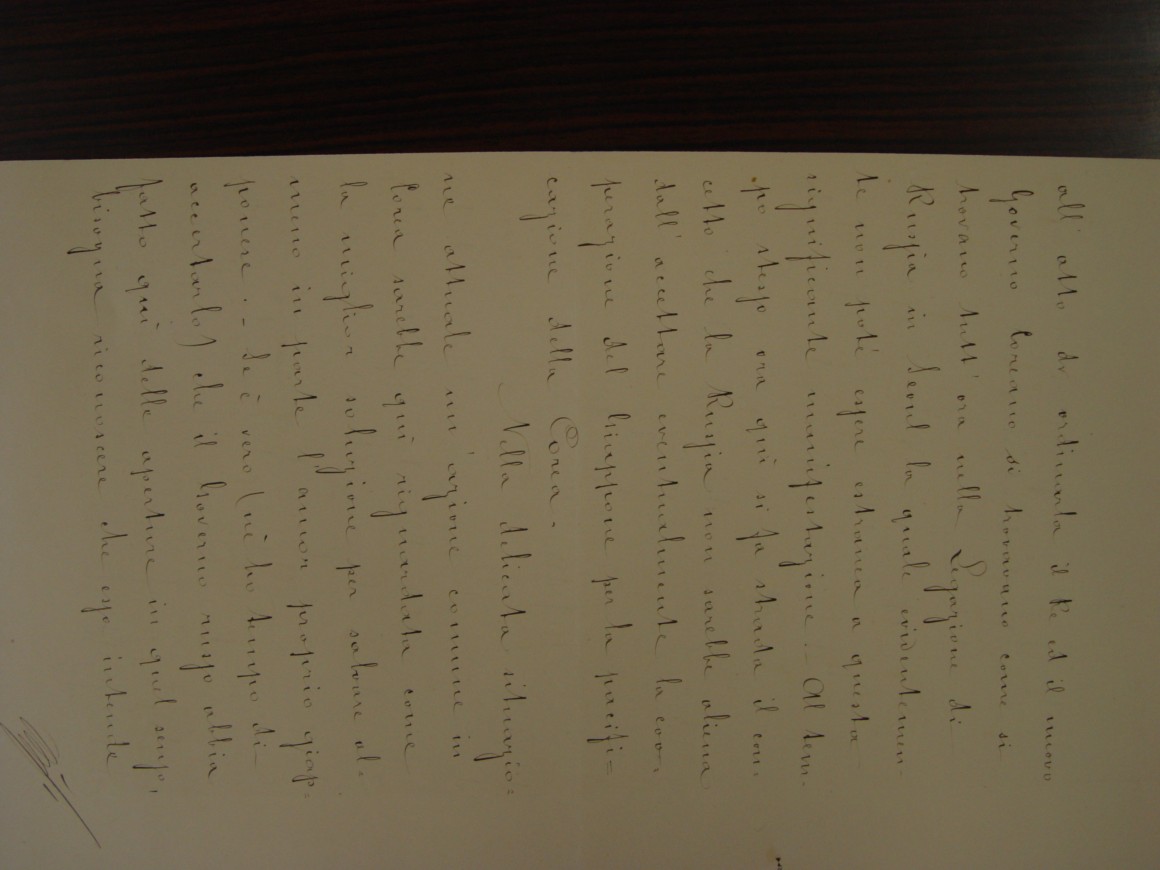 all' atto di ordinarla il Re ed il nuovo
Governo Coreano si trovavano come si
trovano tutt' ora nella Legazione di
Russia in Seoul la quale evidentemen-
te non poté essere estranea a questa
significante manifestazione. - Al tem-
po stesso ora quì si fa strada il con-
cetto che la Russia non sarebbe aliena
dall' accettare eventualmente la coo-
perazione del Giappone per la pacifi=
cazione della Corea.
Nella delicata situazio=
ne attuale un' azione comune in
Corea sarebbe quì riguardata come
la miglior soluzione per salvare al-
meno in parte l' amor proprio giap=
ponese. - Se è vero (nè ho tempo di
accertarlo) che il Governo russo abbia
fatto quì delle aperture in quel senso,
bisogna riconoscere che esso intende